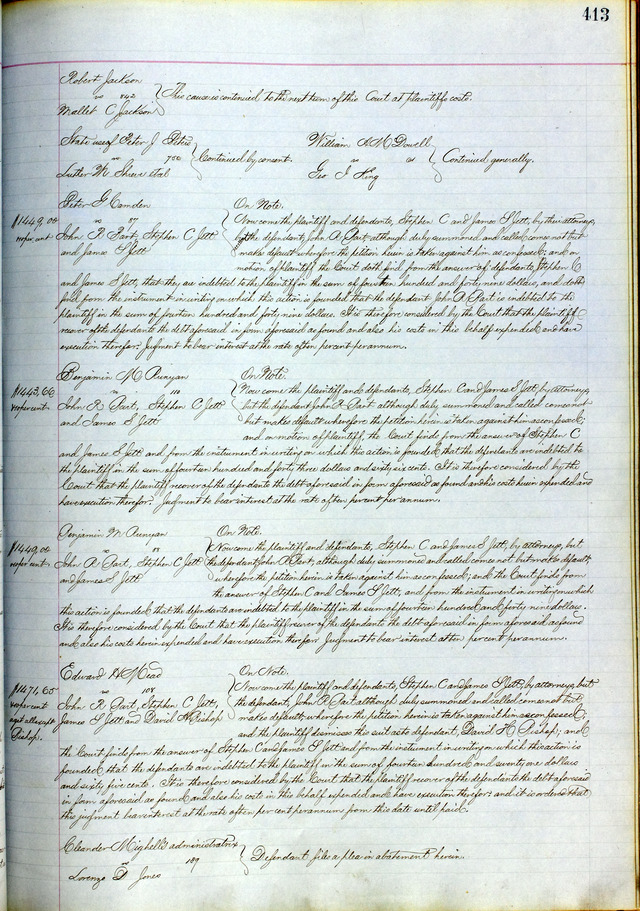 413
Robert Jackson
vs 842 This cause is continued to the next term of this Court at plaintiffs costs.
Mallet C Jackson
State use of Peter J Peters
vs 700 Continued by consent.
Luther M Shreve et al
William A McDowell
vs Continued generally.
Geo I King
Peter G Camden On Note.
$1449,00 vs 87 Now come the plaintiff and defendants, Stephen C and James S Jett, by their attorneys,
10 per cent John R Part, Stephen C Jett but the defendant, John R Part although duly summoned and called comes not but
and James S Jett make default wherefore the petition herein is taken against him as confessed; and on
motion of plaintiff the Court doth find from the answer of defendants, Stephen C
and James S Jett, that they are indebted to the plaintiff in the sum of fourteen hundred and forty nine dollars, and doth
find from the instrument in writing on which this action is founded that the defendant John R Part is indebted to the
plaintiff in the sum of fourteen hundred and forty nine dollars. It is therefore considered by the Court that the plaintiff
recover of the defendants the debt aforesaid in form aforesaid as found and also his costs in this behalf expended and have
execution therefor. Judgment to bear interest at the rate of ten percent per annum.
Benjamin M Runyan On Note.
$1443,66 vs 110 Now come the plaintiff and defendants, Stephen C and James S Jett, by attorneys,
10 per cent. John R Part, Stephen C Jett but the defendant John R Part although duly summoned and called comes not
and James S Jett but makes default wherefore the petition herein is taken against him as confessed;
and on motion of plaintiff, the Court finds from the answer of Stephen C
and James S Jett and from the instrument in writing on which this action is founded that the defendants are indebted to
the plaintiff in the sum of fourteen hundred and forty three dollars and sixty six cents. It is therefore considered by the
Court that the plaintiff recover of the defendants the debt aforesaid in form aforesaid as found and his costs herein expended and
have execution therefor. Judgment to bear interest at the rate of ten percent per annum.
Benjamin M Runyan On Note.
$1449,00 vs Now come the plaintiff and defendants, Stephen C and James S Jett, by attorneys, but
10 per cent. John R Part, Stephen C Jett the defendant John R Part, although duly summoned and called comes not but makes default;
and James S Jett wherefore the petition herein is taken against him as confessed; and the Court finds from
the answer of Stephen C and James S Jett, and from the instrument in writing on which
this action is founded, that the defendants are indebted to the plaintiff in the sum of fourteen hundred and forty nine dollars.
It is therefore considered by the Court that the plaintiff recover of the defendants the debt aforesaid in form aforesaid as found
and also his costs herein expended and have execution therefor. Judgment to bear interest at ten percent per annum.
Edward H Mead On Note.
$1471,65 vs 108 Now come the plaintiff and defendants, Stephen C and James S Jett, by attorneys, but
10 per cent John R Part, Stephen C Jett, the defendant, John R Part although duly summoned and called comes not but
agst all except James S Jett and David H Bishop makes default; wherefore the petition herein is taken against him as confessed;
Bishop. and the plaintiff dismisses his suit as to defendant, David H Bishop; and
the Court finds from the answer of Stephen C and James S Jett and from the instrument in writing on which this action is
founded that the defendants are indebted to the plaintiff in the sum of fourteen hundred and seventy one dollars
and sixty five cents. It is therefore considered by the Court that the plaintiff recover of the defendants the debt aforesaid
in form aforesaid as found and also his costs in this behalf expended and have execution therefor: and it is ordered that
this judgment bear interest at the rate of ten per cent per annum from this date until paid.
Eleander Mighells administratrix
vs 189 Defendant files a plea in abatement herein.
Lorenzo D Jones